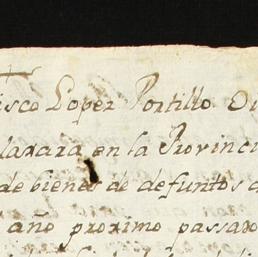 isco Lopez Portillo Oi
laxara en la Provinci
de bienes de defuntos
año proximo passa